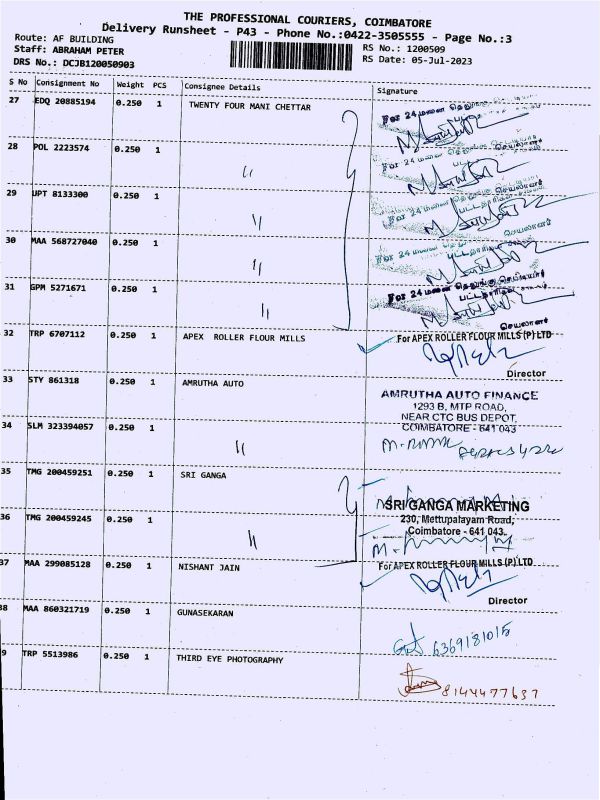 THE PROFESSIONAL COURIERS, COIMBATORE
Delivery Runsheet - P43 - Phone No.:0422-3505555 - Page No.:3
Route: AF BUILDING
Staff: ABRAHAM PETER
DRS No.: DCJB120050903
RS No.: 1200509
RS Date: 05-Jul-2023
S No Consignment No Weight PCS Consignee Details Signature
27 EDQ 20885194 0.250 1 TWENTY FOUR MANI CHETTAR
For 24 மனை தெலுங்கு
28 POL 2223574 0.250 1 "
For 24 மனை
29 UPT 8133300 0.250 1 "
For 24 மனை
செயலாளர்
30 MAA 568727040 0.250 1 "
For 24 மனை
செயலாளர்
31 GPM 5271671 0.250 1 "
For 24 மனை தெலுங்கு செட்டியார்
செயலாளர்
32 TRP 6707112 0.250 1 APEX ROLLER FLOUR MILLS
For APEX ROLLER FLOUR MILLS (P) LTD
Director
33 STY 861318 0.250 1 AMRUTHA AUTO
AMRUTHA AUTO FINANCE
1293 B, MTP ROAD,
NEAR CTC BUS DEPOT,
COIMBATORE - 641 043
34 SLM 323394057 0.250 1 "
35 TMG 200459251 0.250 1 SRI GANGA
SRI GANGA MARKETING
230, Mettupalayam Road,
Coimbatore - 641 043.
36 TMG 200459245 0.250 1 "
37 MAA 299085128 0.250 1 NISHANT JAIN
For APEX ROLLER FLOUR MILLS (P) LTD
Director
38 MAA 860321719 0.250 1 GUNASEKARAN
6369181015
9 TRP 5513986 0.250 1 THIRD EYE PHOTOGRAPHY
8144477637